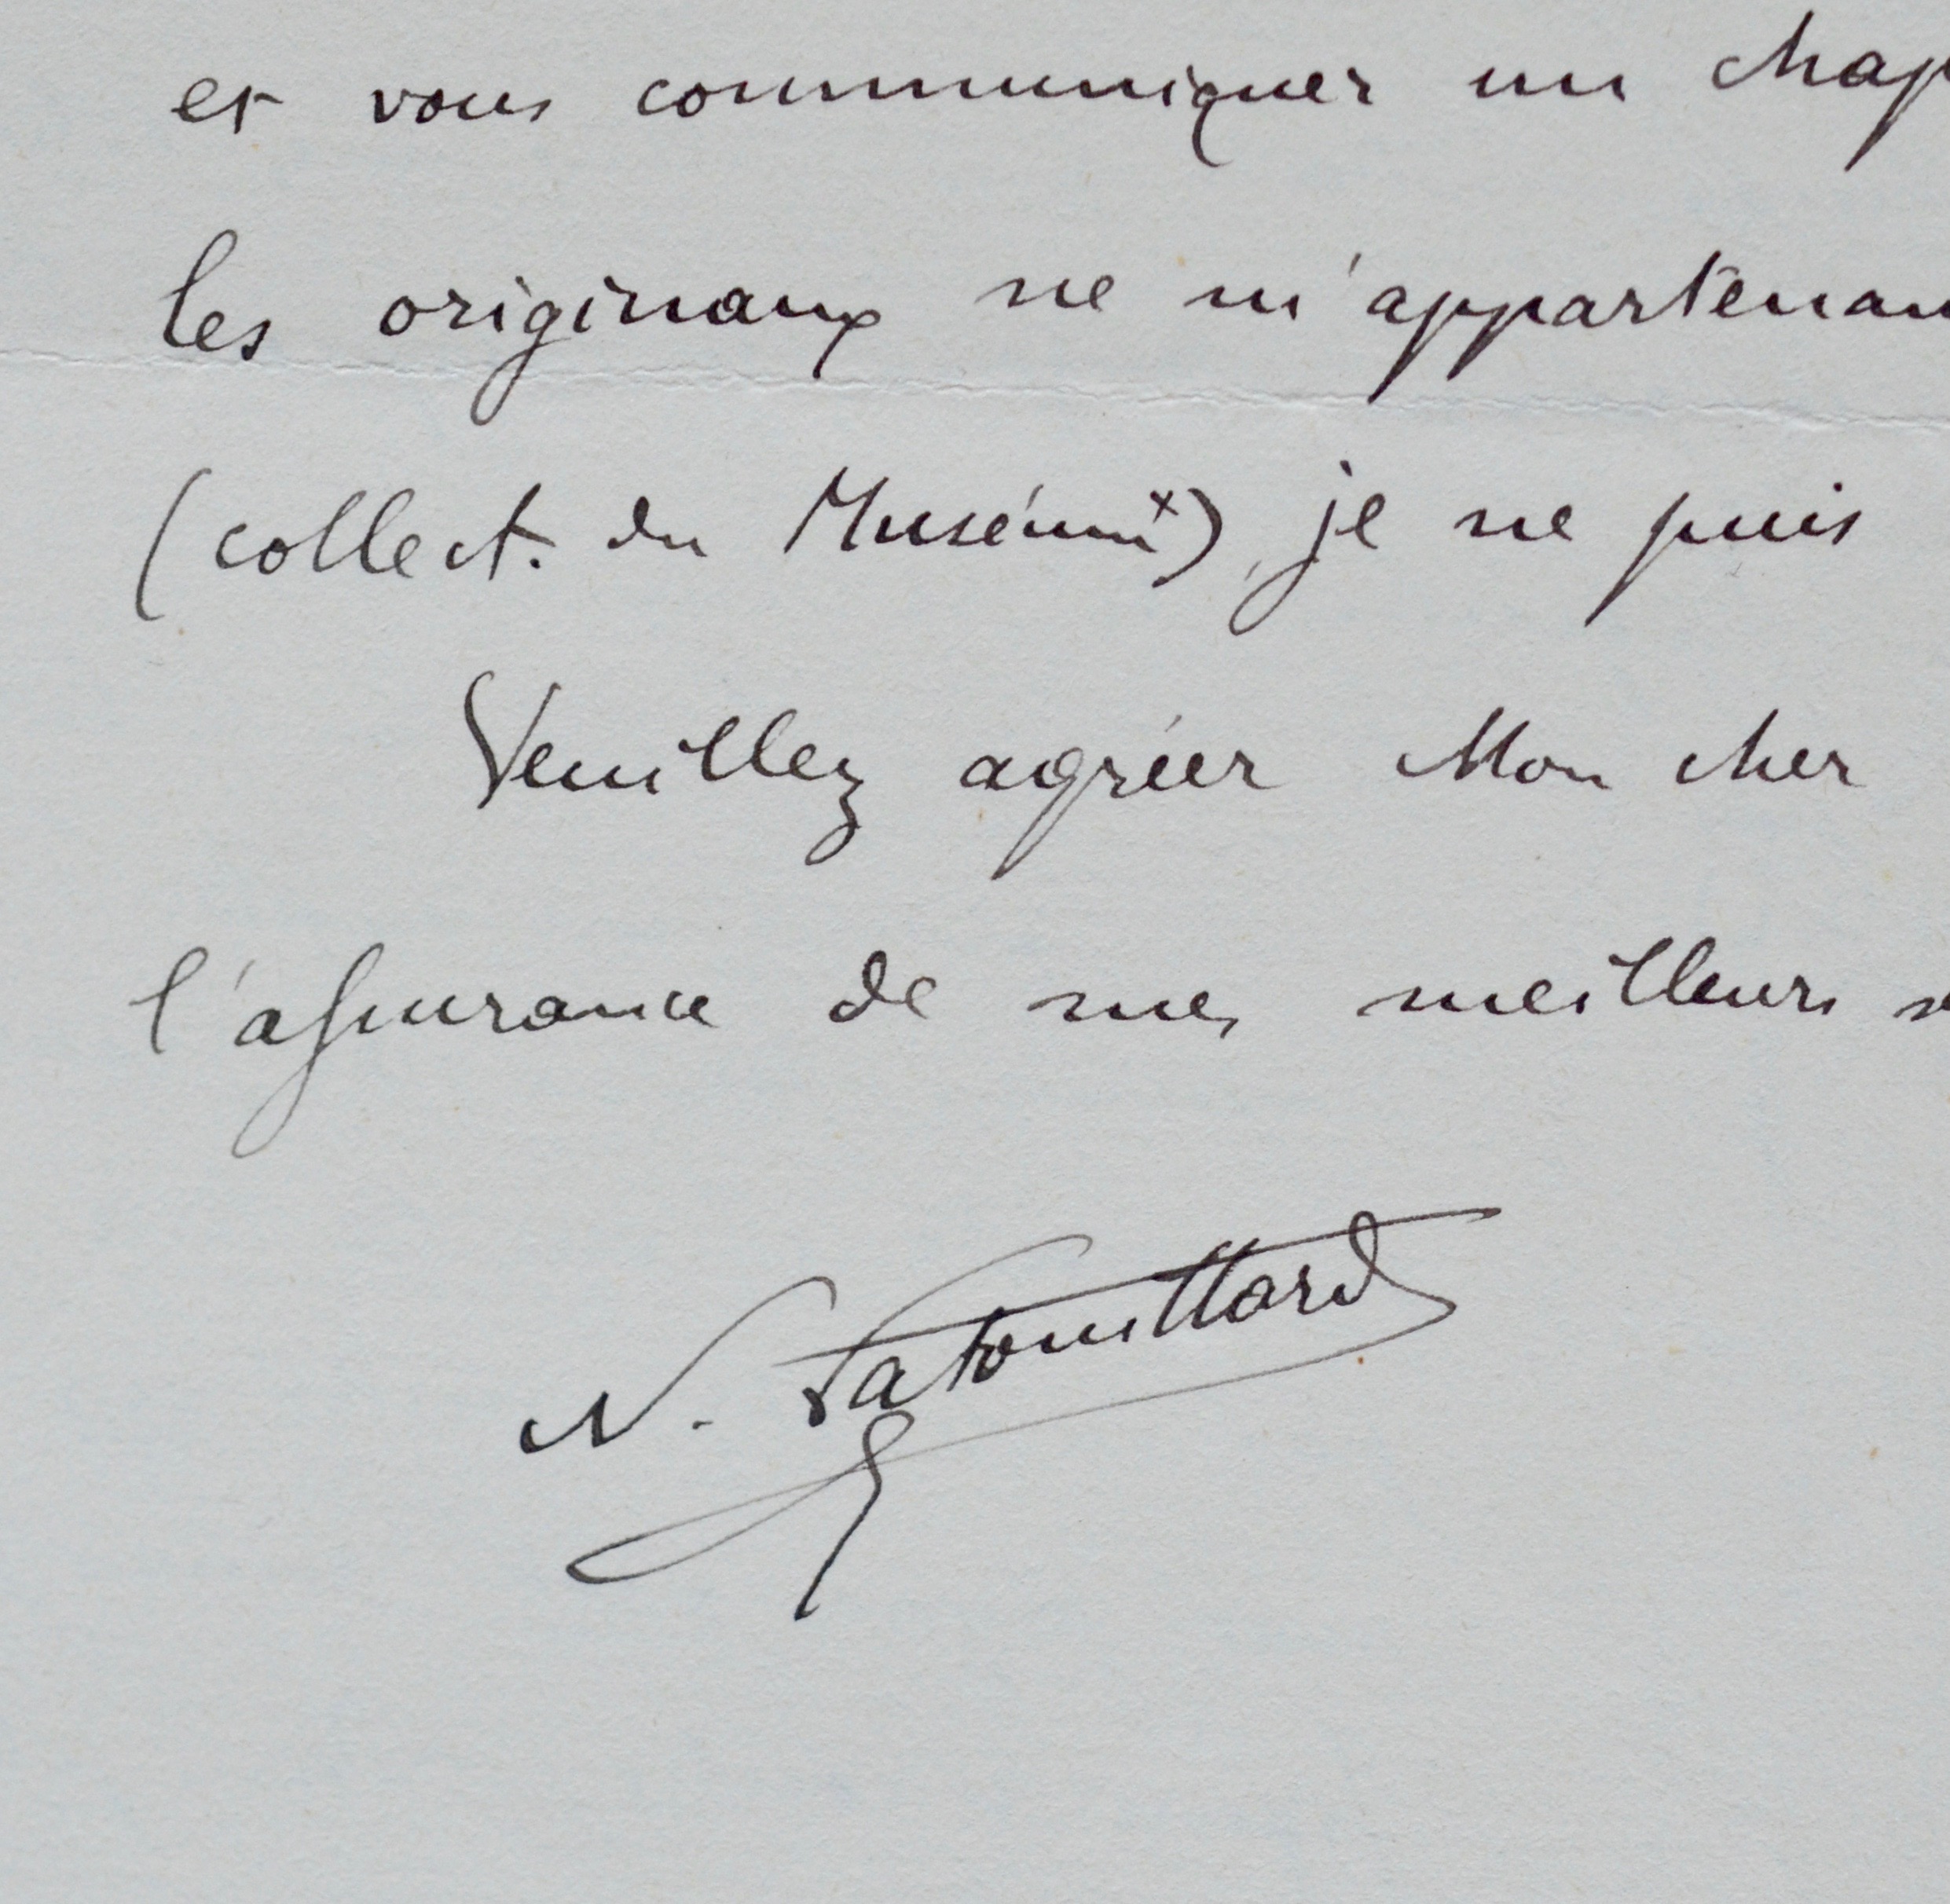 et vous communiquer un chap
les originaux ne m'appartenan
(collect. du Muséum x), je ne puis
Veuillez agréer Mon cher
l'assurance de mes meilleurs se
N. Patouillard